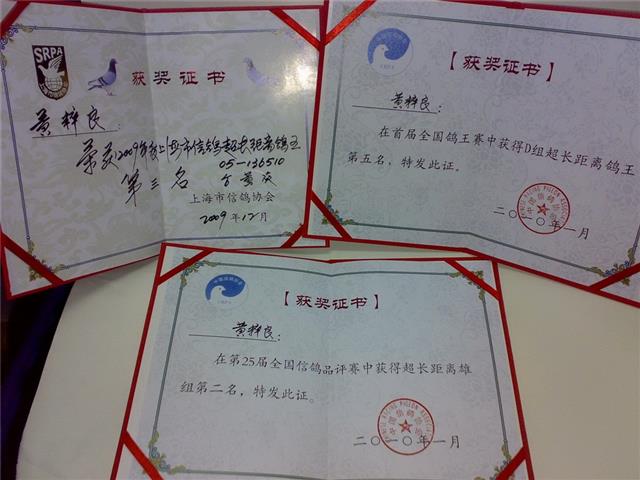 SRPA
获奖证书
黄梓良:
荣获2009年度上海市信鸽超长距离鸽王
05-136510
第三名
上海市信鸽协会
2009年12月
【获奖证书】
黄梓良:
在首届全国鸽王赛中获得D组超长距离鸽王
第五名，特发此证。
二〇一〇年一月
【获奖证书】
黄梓良:
在第25届全国信鸽品评赛中获得超长距离雄
组第二名，特发此证。
二〇一〇年一月